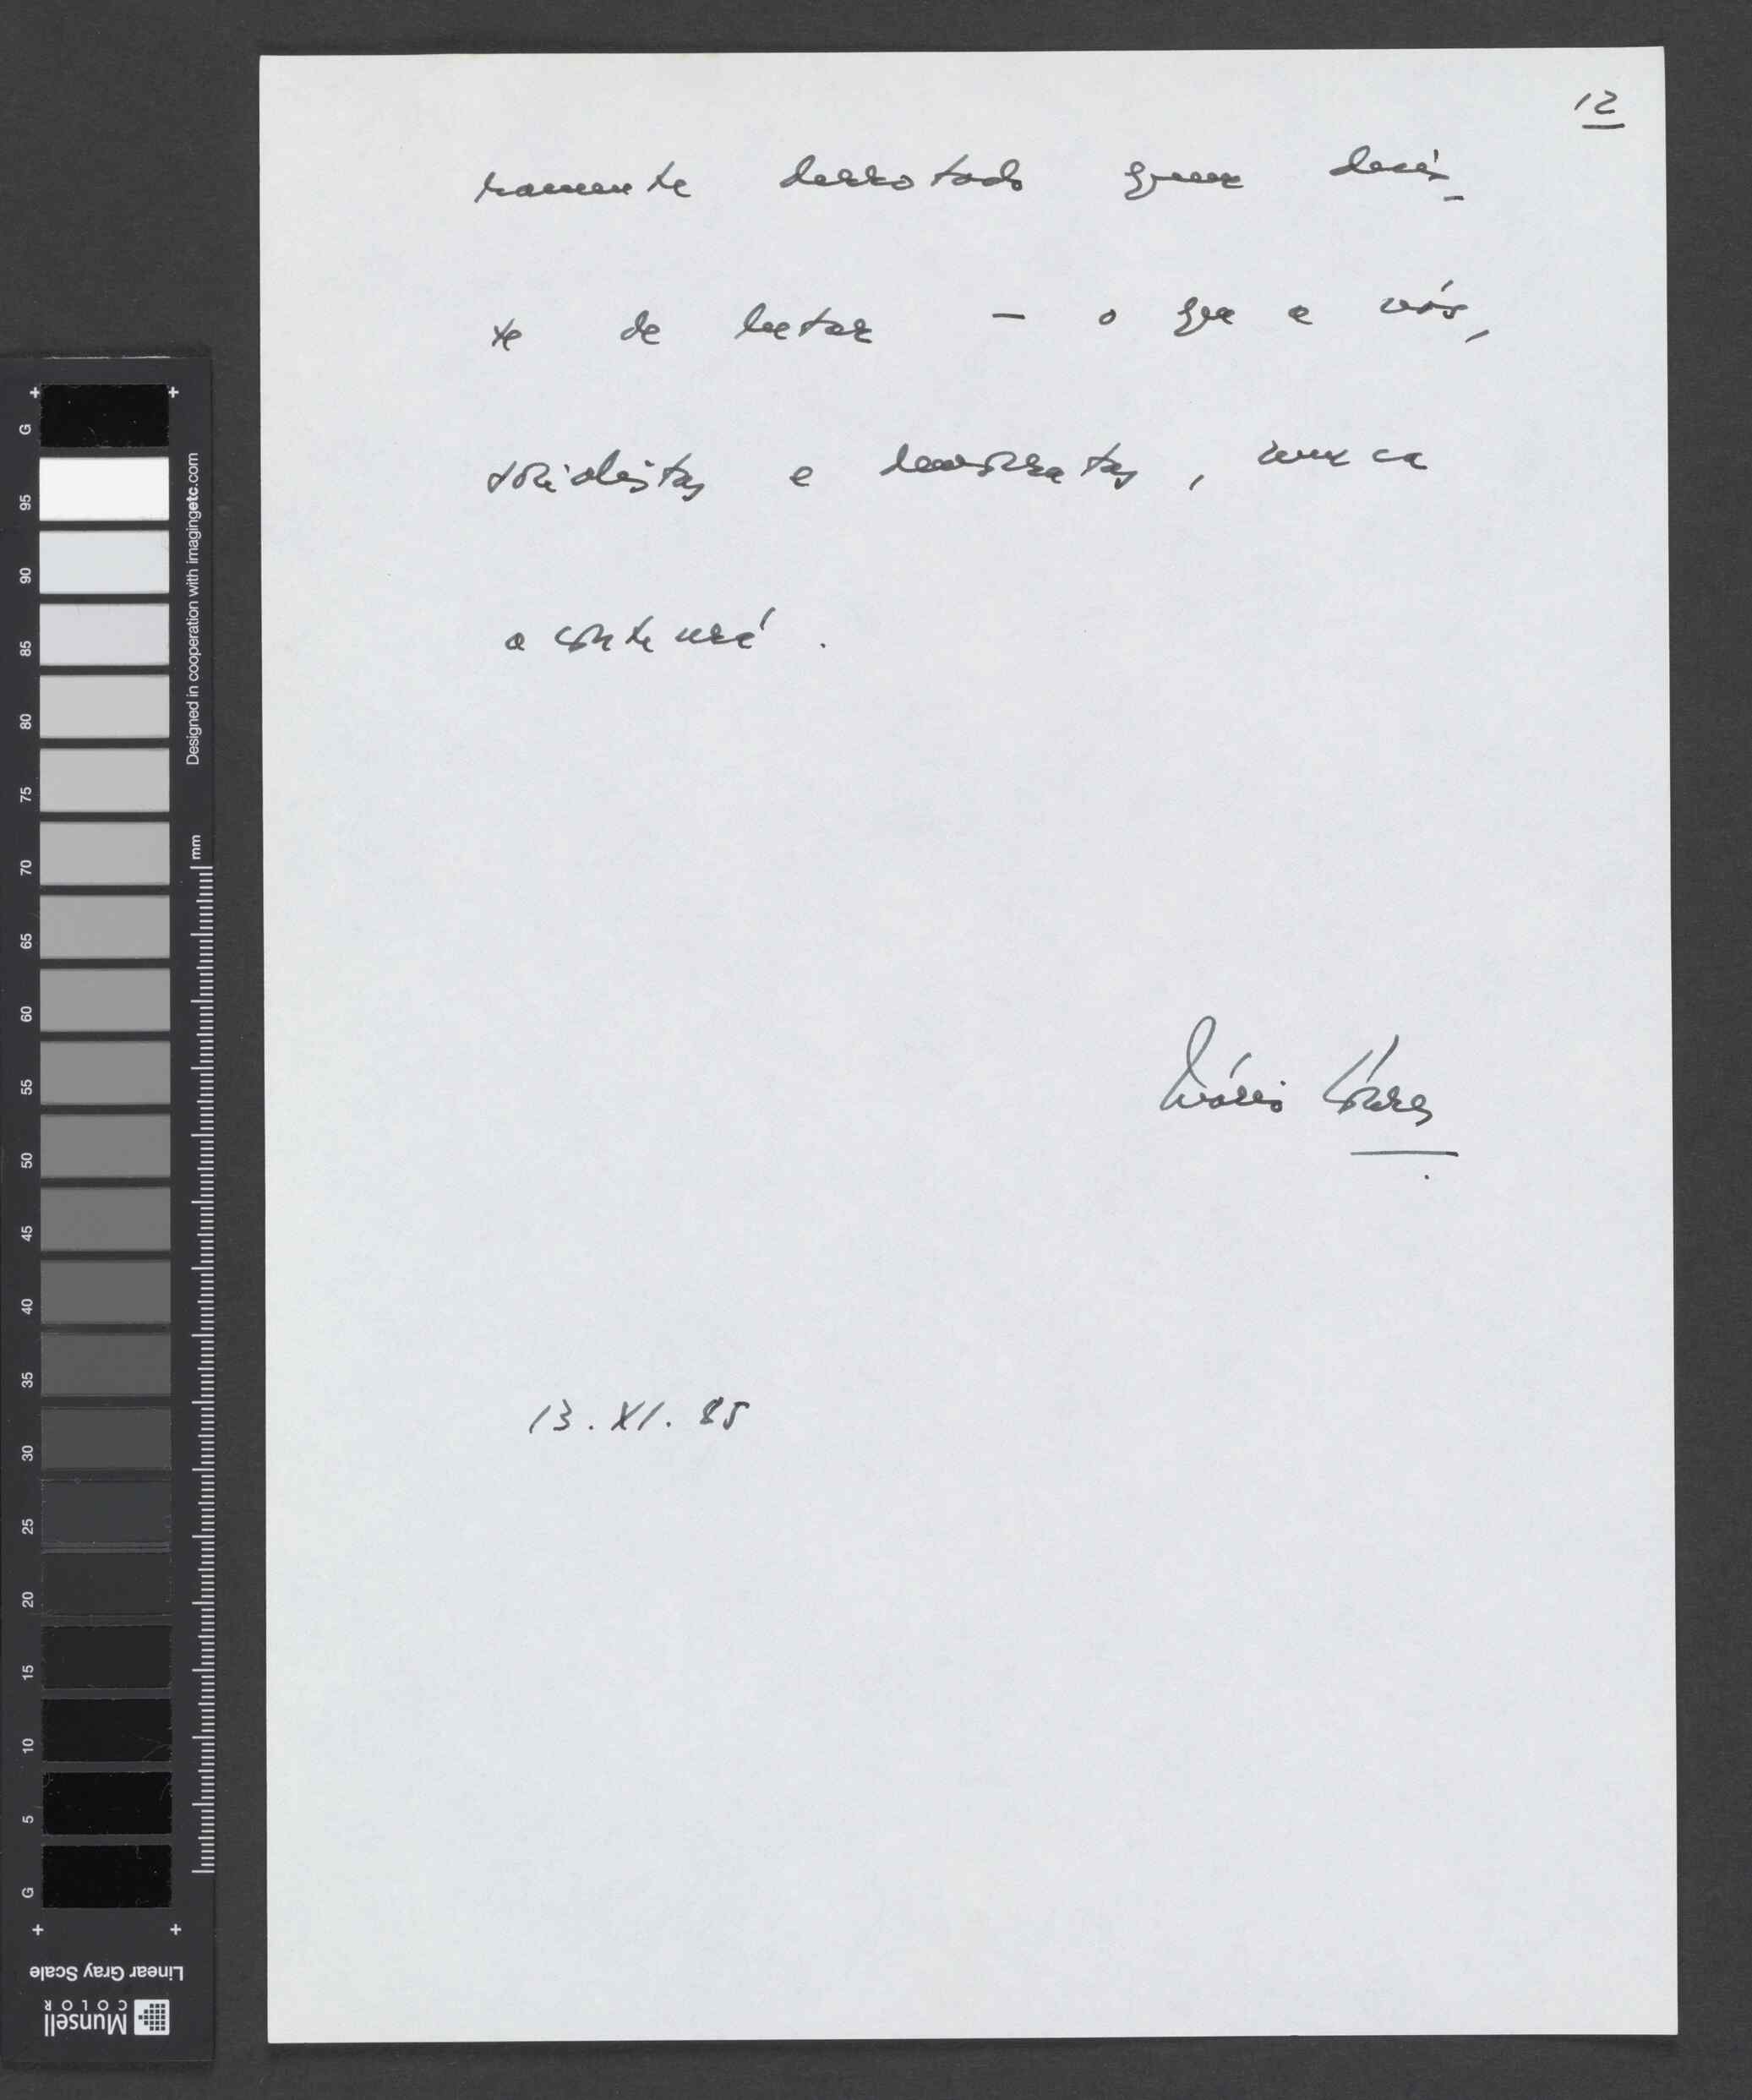 12
ramente derrotado quem desis-
te de lutar – o que a nós,
socialistas e democratas, nunca
acontecerá.
Mário Soares
13.XI.85
G
95
90
85
80
75
70
65
60
55
50
45
40
35
30
25
20
15
10
5
G
Designed in cooperation with imagingetc.com
mm
Linear Gray Scale
Munsell
COLOR